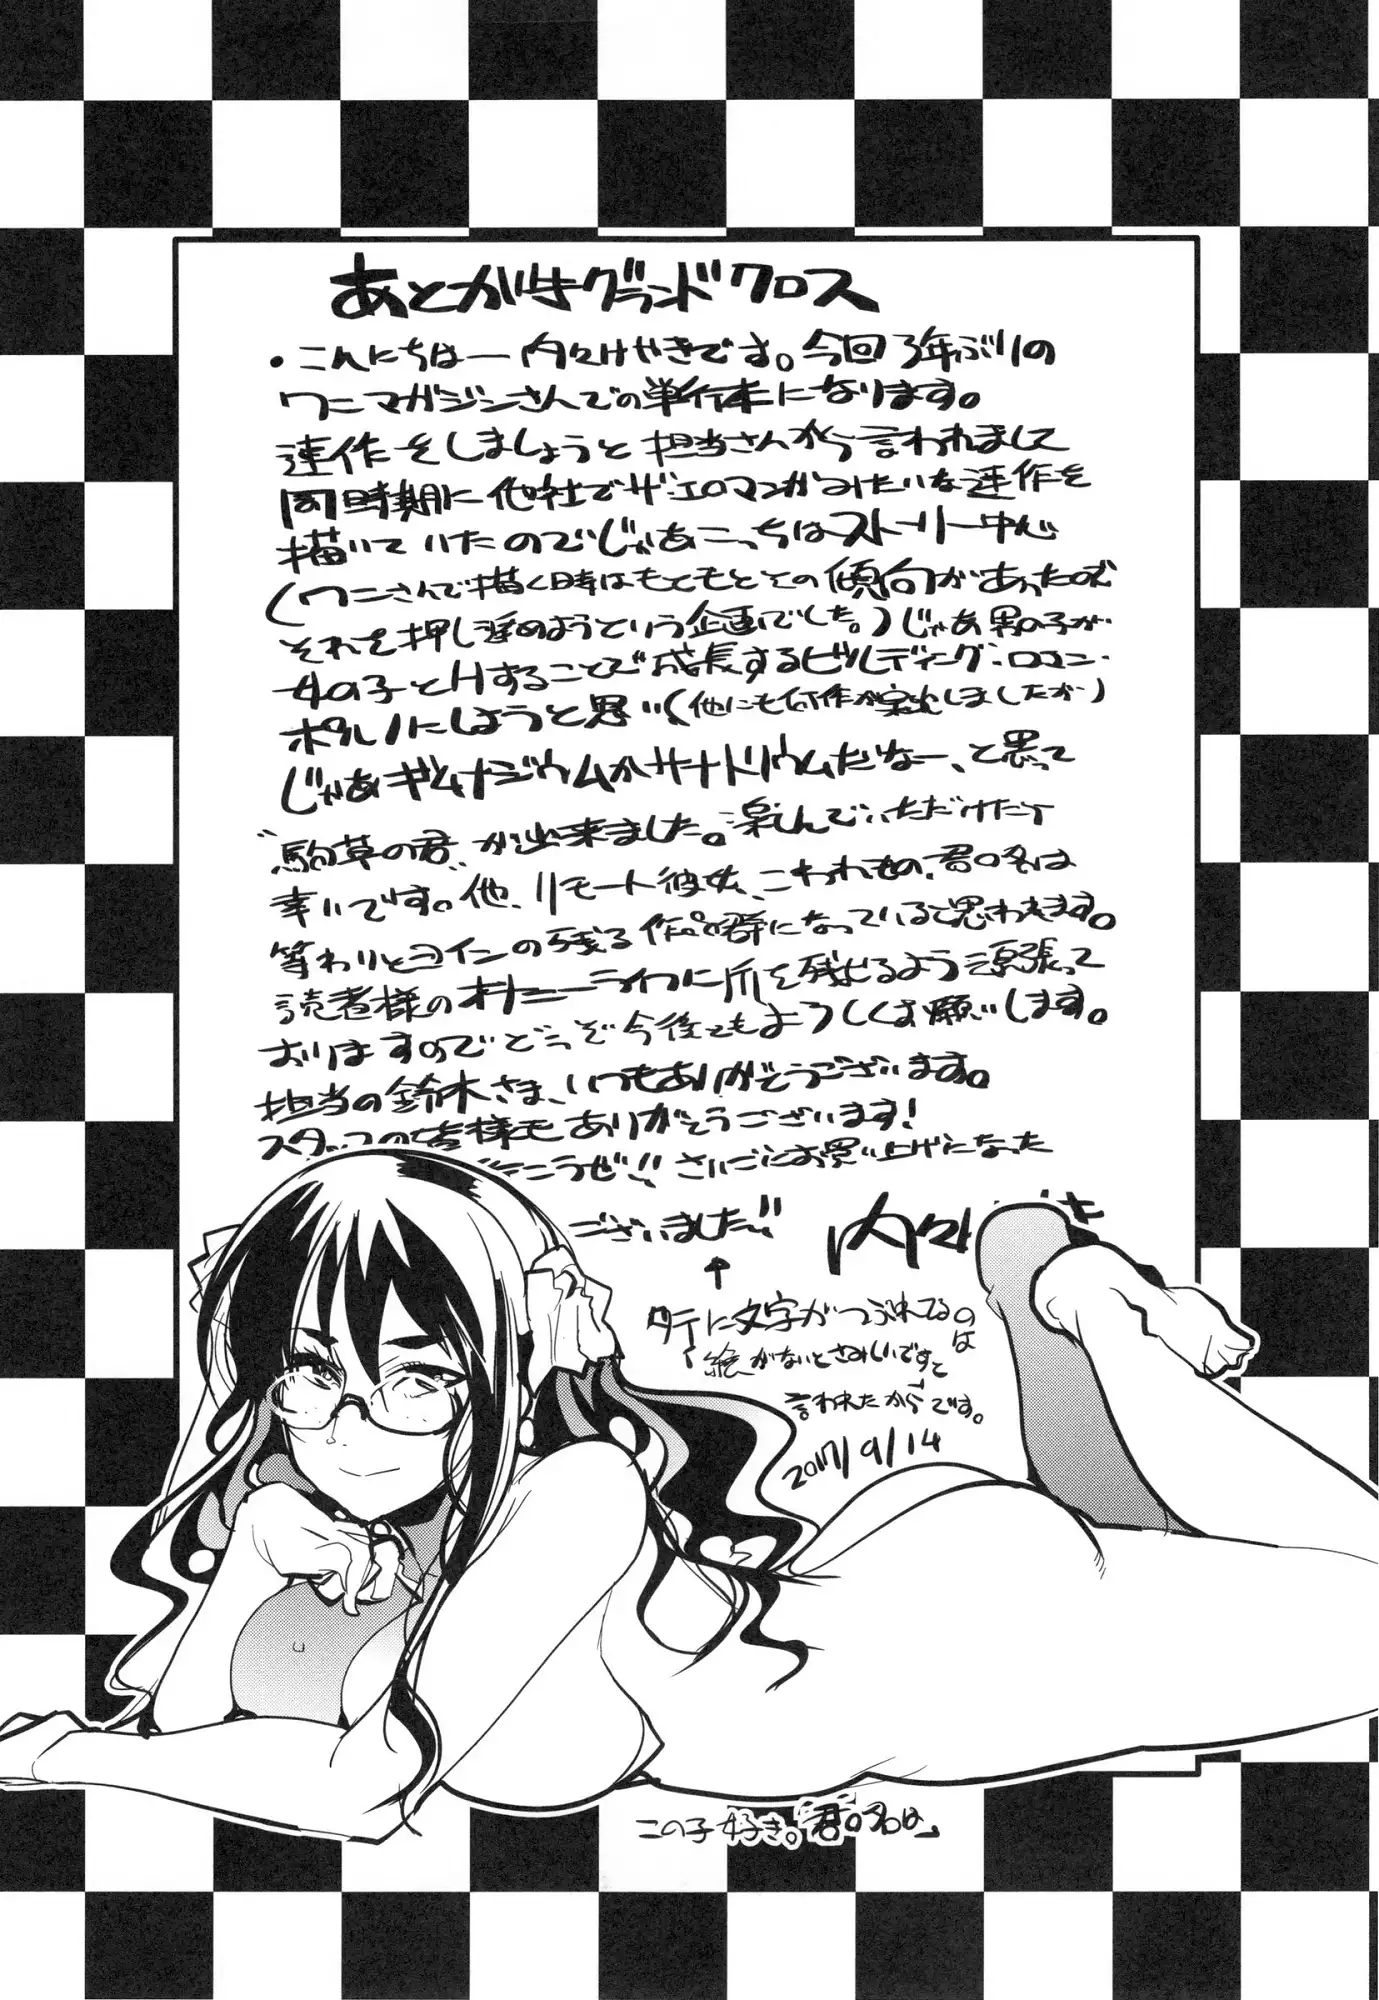 あとがきグランドクロス
・こんにちはー内々けやきです。今回3年ぶりの
ワニマガジンさんでの単行本になります。
連作をしましょうと担当さんから言われまして
同時期に他社でザ・エロマンガみたいな連作を
描いていたのでじゃあこっちはストーリー中心
(ワニさんで描く時はもともとその傾向があったので
それを押し進めようという企画でした。)じゃあ男の子が
女の子とHすることで成長するビルディング・ロマン・
ポルノにしようと思い(他にも何作か出しましたが)
じゃあギムナジウムかサナトリウムだなー、と思って
"駒草の君"が出来ました。楽しんでいただけたら
幸いです。他、リモート彼女、こわれもの、君の名は
等わりとヨインの残る作品群になっていると思われます。
読者様のオナニーライフに爪を残せるよう頑張って
おりますのでどうぞ今後ともよろしくお願いします。
担当の鈴木さま、いつもありがとうございます。
スタッフの皆様もありがとうございます!
さいごにお買い上げになった
ございました!!
内々
↑
タテに文字がつぶれてるのは
絵がないとさみしいですと
言われたからです。
2017/9/14
この子好き。「君の名は」